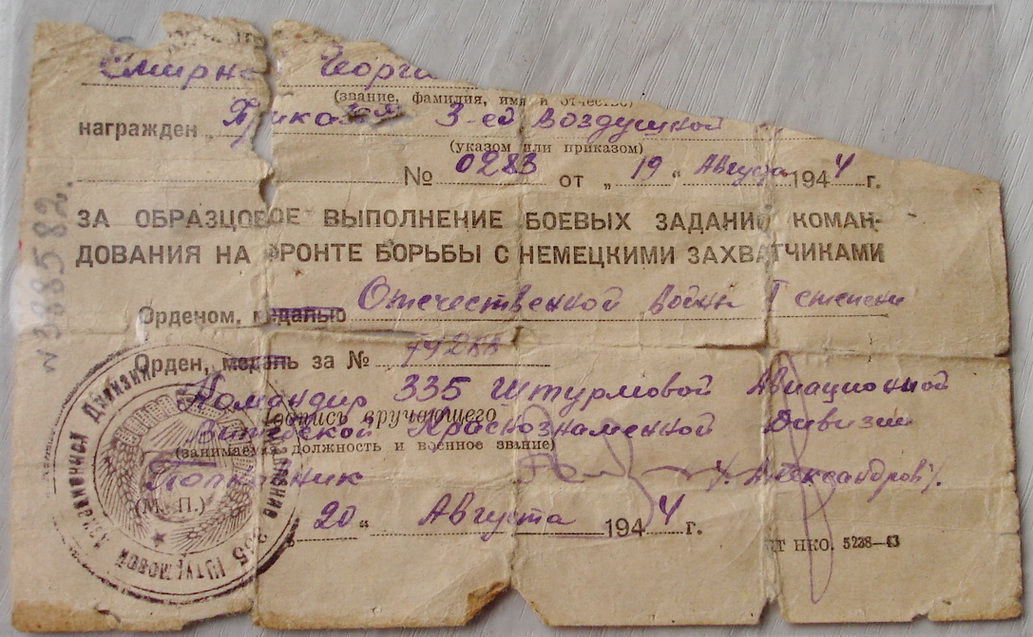 Смирно Георги
(звание, фамилия, имя и отчество)
награжден Приказом 3-ей Воздушной
(указом или приказом)
№ 0283 от „19“ Августа 1944 г.
ЗА ОБРАЗЦОВОЕ ВЫПОЛНЕНИЕ БОЕВЫХ ЗАДАНИЙ КОМАН-
ДОВАНИЯ НА ФРОНТЕ БОРЬБЫ С НЕМЕЦКИМИ ЗАХВАТЧИКАМИ
Орденом, медалью Отечественной войны I степени
Орден, медаль за №
Командир 335 Штурмовой Авиационной
Подпись вручающего
Витебской Краснознаменной Дивизии
(занимаемая должность и военное звание)
Полковник /Александров/.
(М. П.)
20 “ Августа 1944 г.
НКО. 5238—43
№ 388582.
335 Штурмовой Авиационной Дивизии